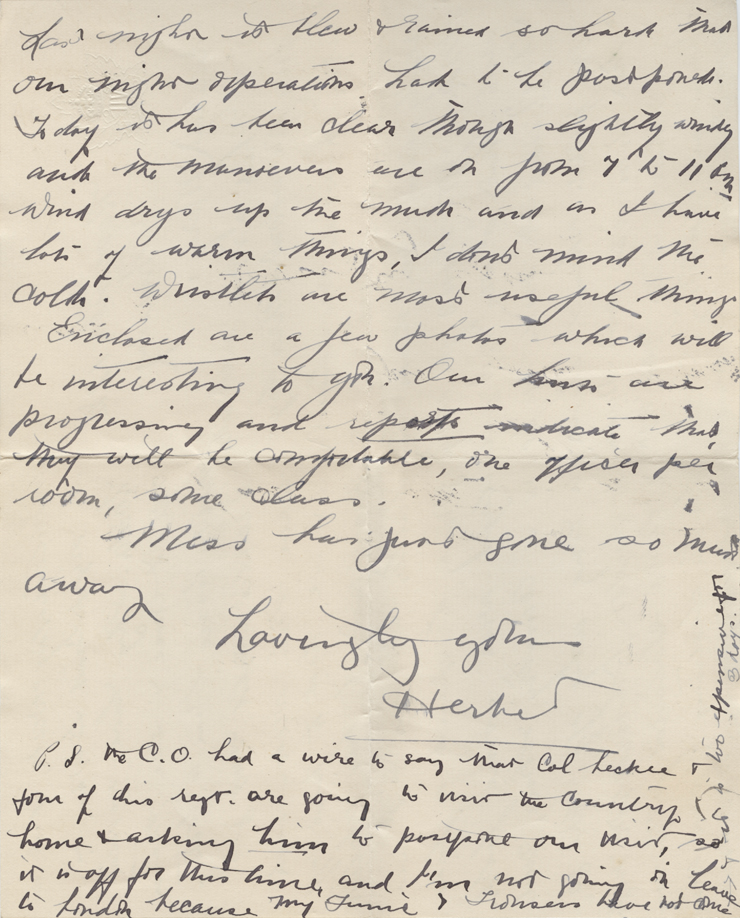 Last night it blew & rained so hard that
our night operations had to be postponed.
Today it has been clear though slightly windy
and the manoevers are on from 7 to 11 pm
wind drys up the mud and as I have
lots of warm things, I don't mind the
cold. Wristlets are most useful things
Enclosed are a few photos which will
be interesting to you. Our huts are
progressing and reports indicate that
they will be comfortable, one officer per
room, some class.
Mess has just gone so must
away
Lovingly yours
Herbert
P.S. the C.O. had a wire to say that Col Leckie &
four of his regt. are going to visit the Country
home & asking him to postpone our visit, so
it is off for this time, and I'm not going on leave
to London because my Tunic & Trousers have not come
& it is too expensive for
3 days.